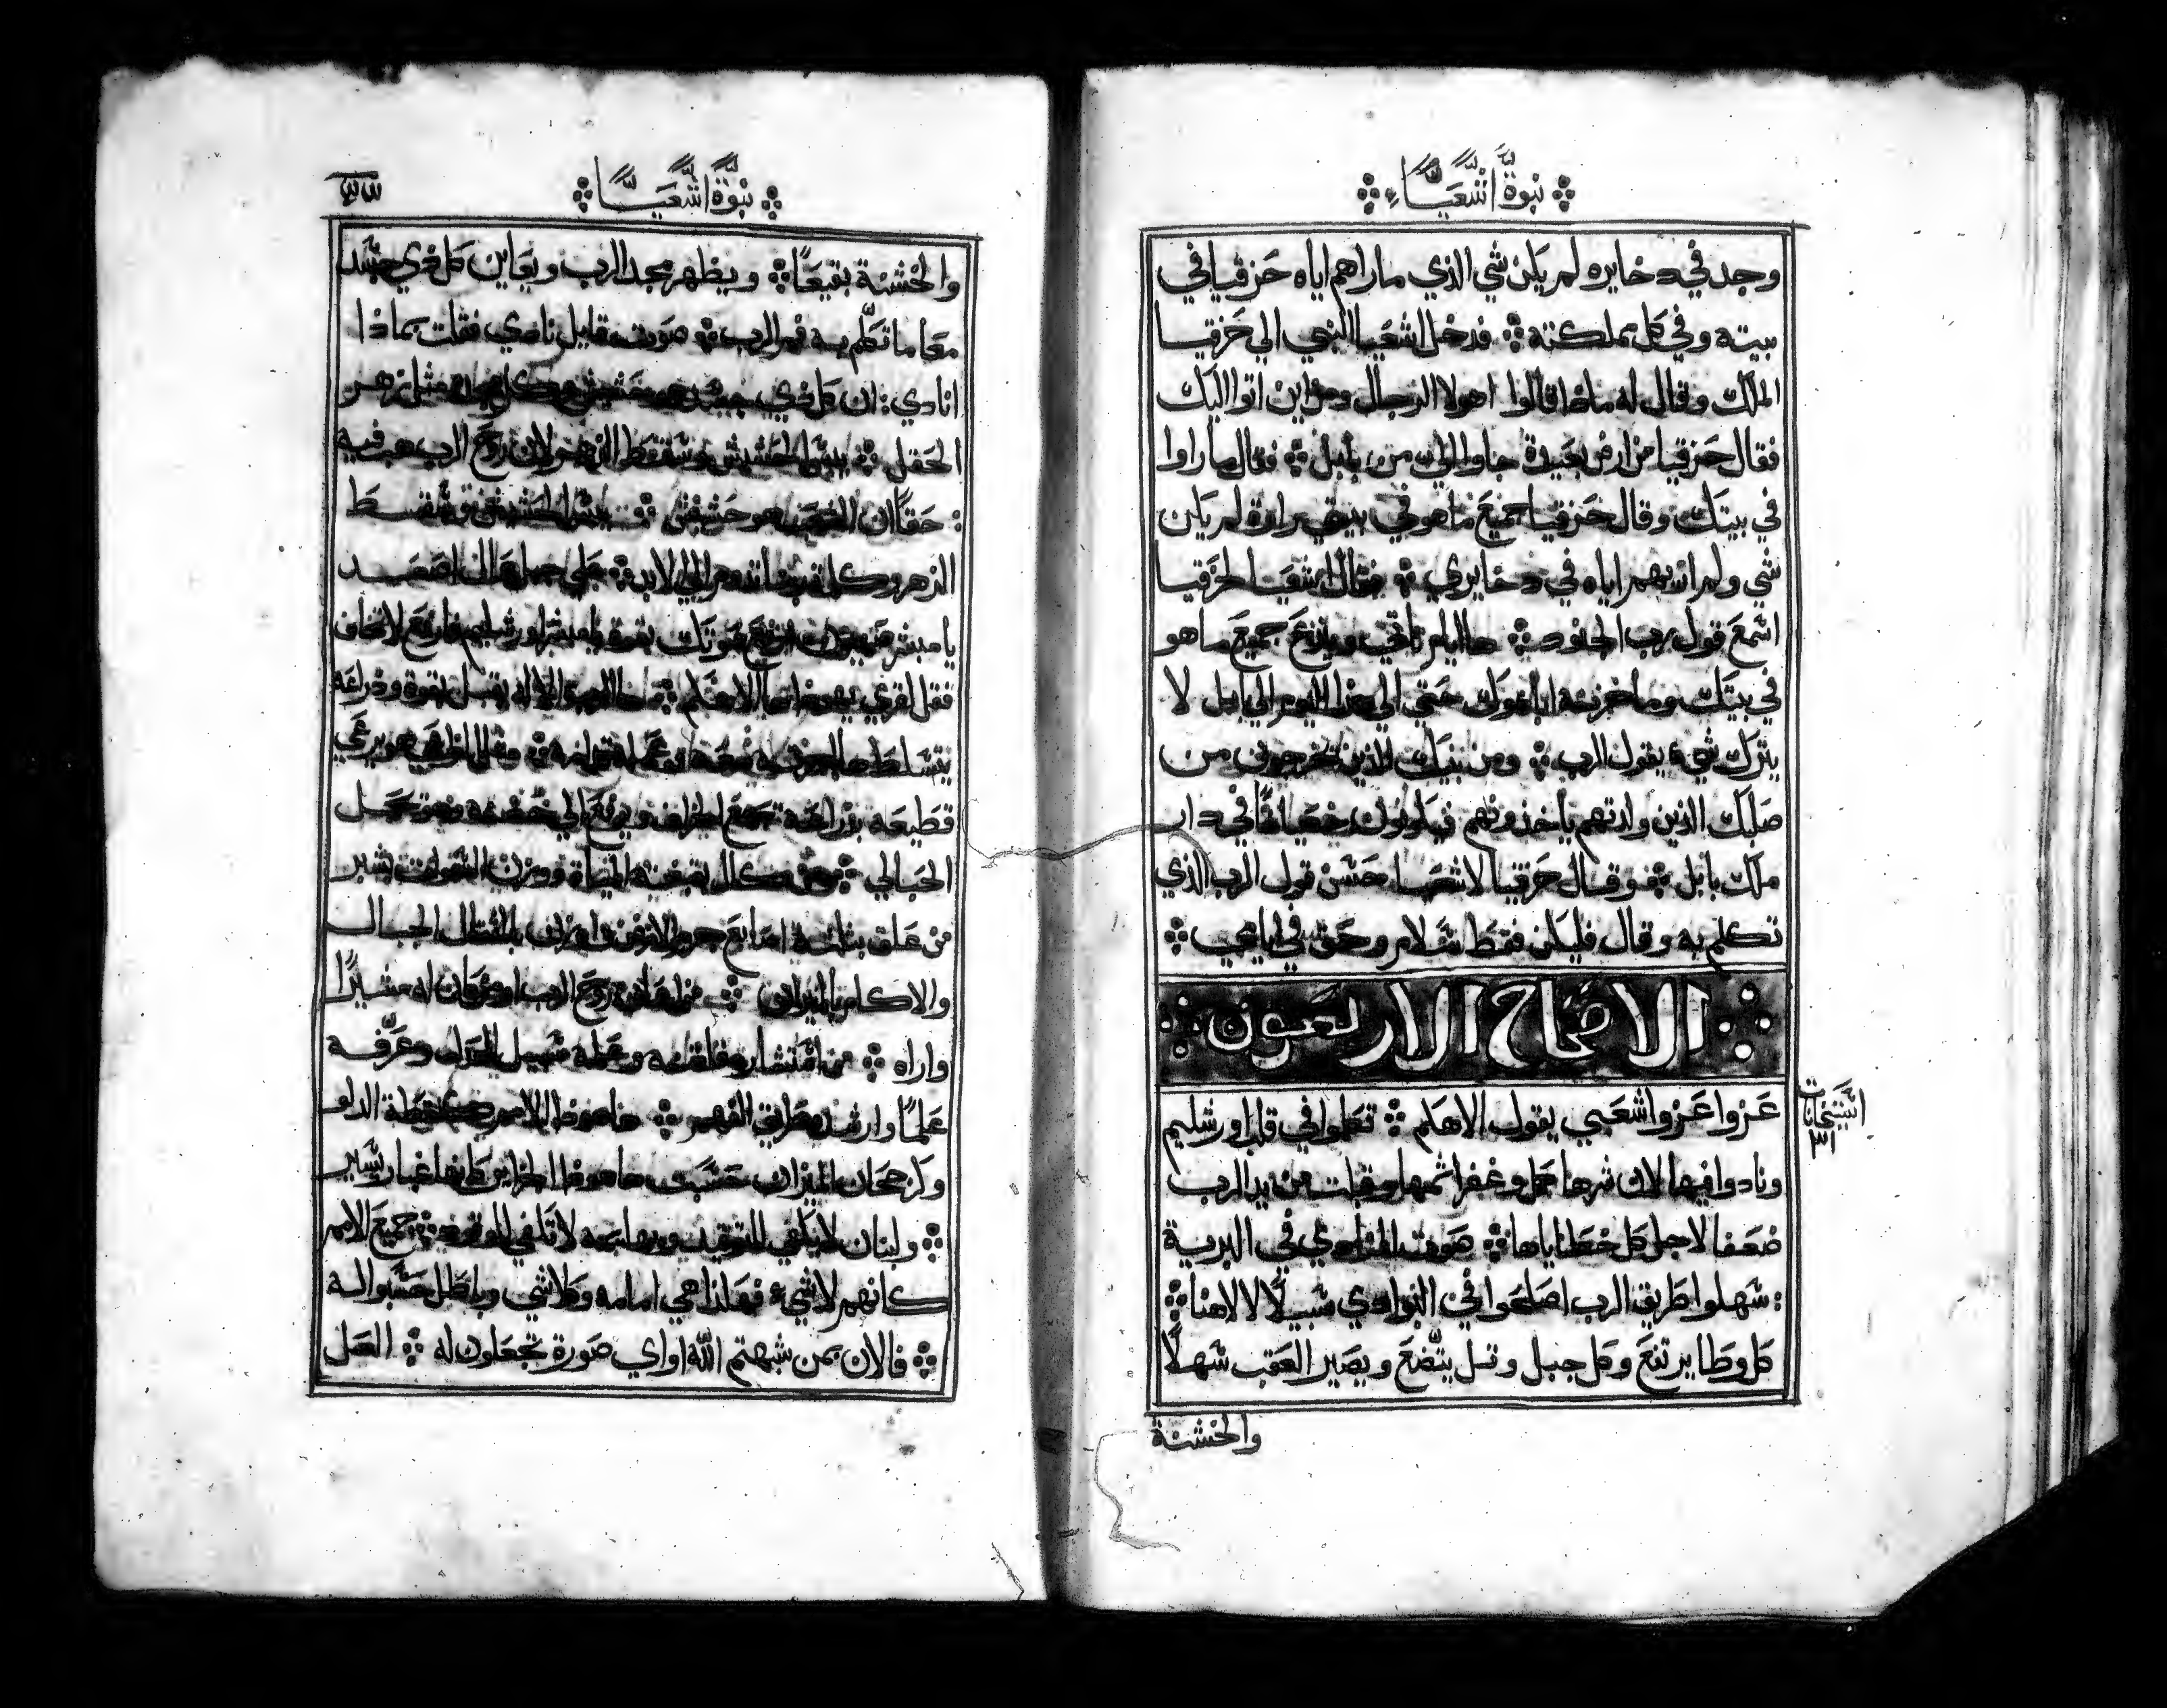 نبوة اشعياء
وجد في دخايره لم يكن شي الذي ما راهم اياه حزقيا في
بيته وفي كل مملكته ⁘ فدخل اشعيا النبي الي حزقيا
الملك وقال له ماذا قالوا هولا الرجال ومن اين اتوا اليك
فقال حزقيا من ارض بعيدة جاوا الي من بابل ⁘ فقال ما راوا
في بيتك وقال حزقيا جميع ما هو في بيتي راوه لم يكن
شي ولم اريهم اياه في دخايري ⁘ فقال اشعيا لحزقيا
اسمع قول رب الجنود ⁘ ها ايام تاتي وينزع جميع ما هو
في بيتك وما خزنه اباوك حتي الي هذا اليوم الي بابل لا
يترك شيء يقول الرب ⁘ ومن بنيك الذين يخرجون من
صلبك الذين ولدتهم ياخذونهم فيكونون خصيانا في دار
ملك بابل ⁘ وقال حزقيا لاشعيا حسن قول الرب الذي
تكلم به وقال فليكن فقط سلام وحق في ايامي ⁘
الاصحاح الاربعون
عزوا عزوا شعبي يقول الاهكم ⁘ تكلموا في قلب اورشليم
ونادوا فيها لان شرها كمل وغفر اثمها وقبلت من يد الرب
ضعفا لاجل كل خطاياها ⁘ صوت المنادي في البرية
: سهلوا طريق الرب اصلحوا في البوادي سبيلا لالاهنا ⁘
كل وطا يرتفع وكل جبل وتل يتضع ويصير العقب سهلا
والخشنة
نبوة اشعيا
والخشنة بقيعا ⁘ ويظهر مجد الرب ويعاين كل ذي جسد
معا ما تكلم به فم الرب ⁘ صوت قايل نادي فقلت بماذا
انادي : ان كل ذي جسد هو حشيش وكل مجده مثل زهر
الحقل ⁘ يبس الحشيش وسقط الزهر لان روح الرب هب فيه
: حقا ان الشعب هو حشيش ⁘ يبس الحشيش وسقط
الزهر وكلمة ربنا تدوم الي الابد ⁘ علي جبل عال اصعد
يا مبشر صهيون ارفع صوتك بقوة يا مبشر اورشليم فارفع لا تخاف
فقل لقري يهوذا ها الاهكم ⁘ ها الرب الاله يقبل بقوة وذراعه
يتسلط ها اجرته معه وعمله قدامه ⁘ مثل الراعي هو يرعي
قطيعه بذراعه يجمع الخراف ويرفع الي حضنه وهو يحمل
الحبالي ⁘ من كال بقبضته المياه ووزن السموات بشبر
من علق بثلثة اصابع جرم الارض ووزن بالمثقال الجبال
والاكام بالميزان ⁘ من اعان روح الرب او من كان له مشيرا
واراه ⁘ من استشار فافهمه وعلمه سبيل العدل وعرفه
علما وارشده طريق الفهم ⁘ ها هوذا الامم كنقطة الدلو
وكرجحان الميزان حسبت ها هوذا الجزاير كانها غبار يسير
⁘ ولبنان لا يكفي للتوقيد وبهايمه لا تكفي للوقود ⁘ جميع الامم
كانهم لا شيء فهكذا هي امامه وكلا شي وباطل حسبوا له
⁘ فالان بمن شبهتم الله او اي صورة تجعلون له ⁘ العل